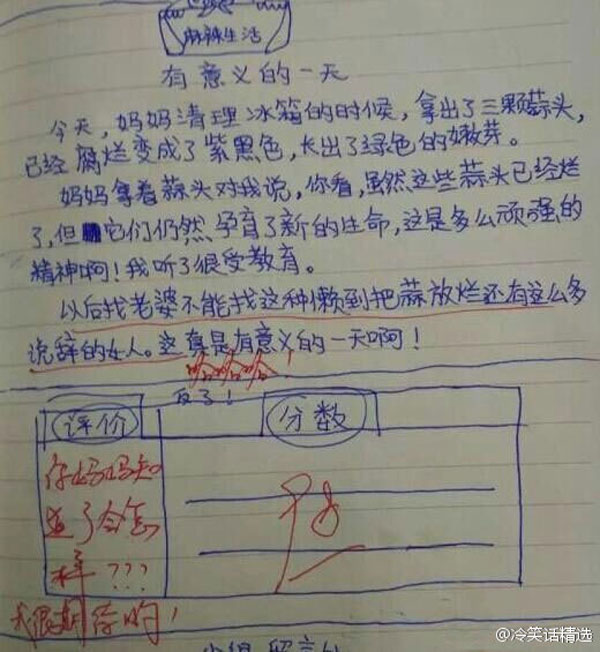 麻辣生活
有意义的一天
今天，妈妈清理冰箱的时候，拿出了三颗蒜头，
已经腐烂变成了紫黑色，长出了绿色的嫩芽。
妈妈拿着蒜头对我说，你看，虽然这些蒜头已经烂
了，但它们仍然孕育了新的生命，这是多么顽强的
精神啊！我听了很受教育。
以后找老婆不能找这种懒到把蒜放烂还有这么多
说辞的女人。这真是有意义的一天啊！
哈哈哈！
反了！
评价
分数
你妈妈知
道了会怎
样？？？
我很期待哟！
优
@冷笑话精选